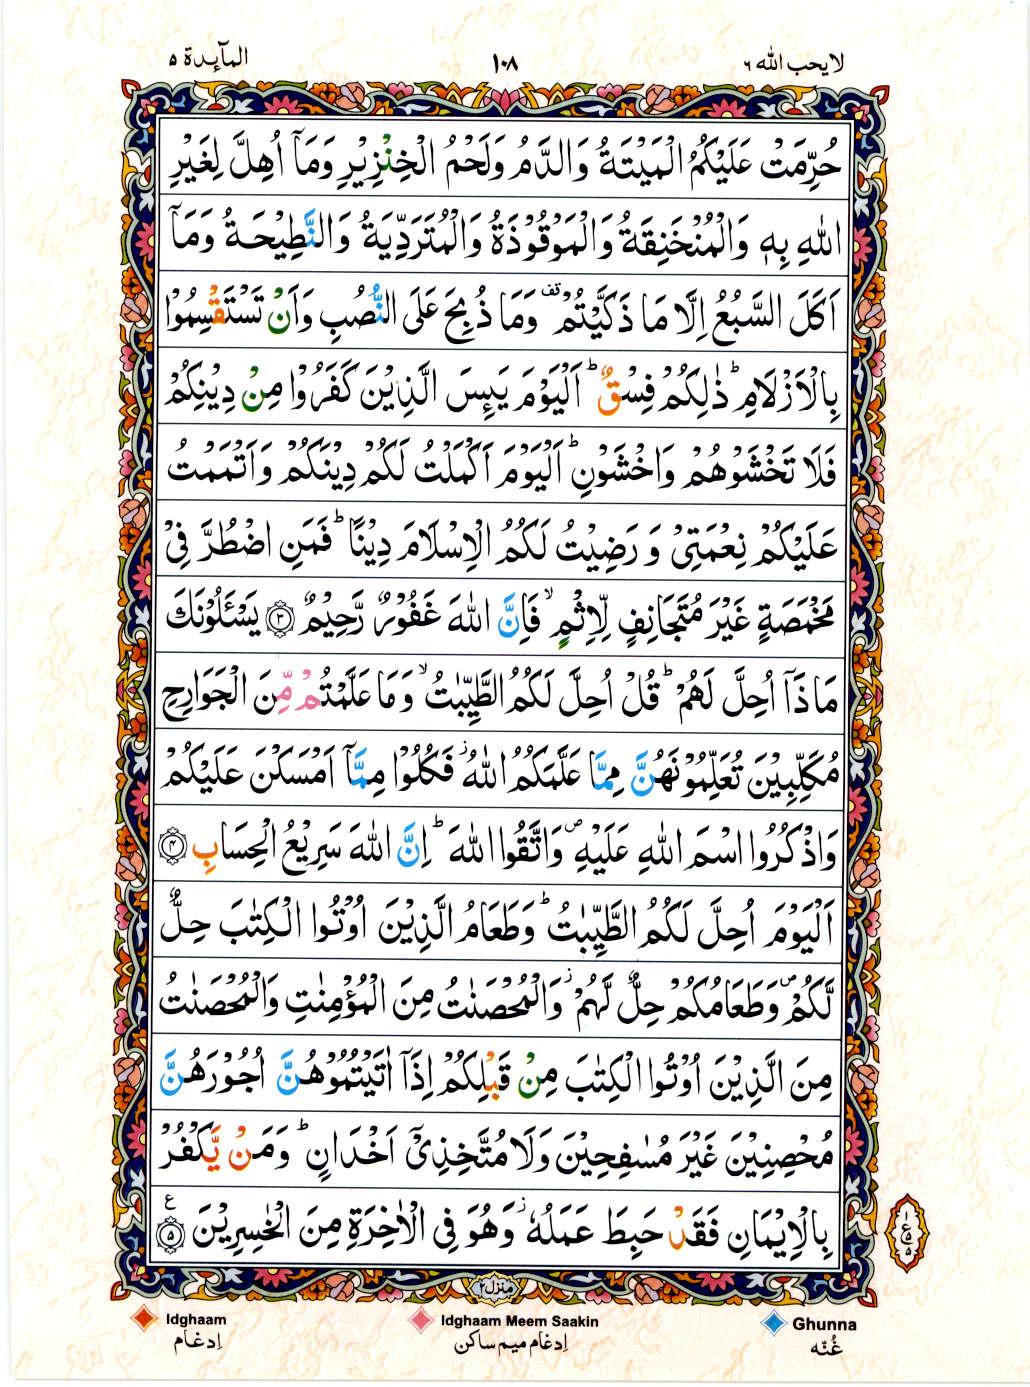 لا یحب الله ٦
١٠٨
المآىِٕدة ٥
حُرِّمَتْ عَلَيْكُمُ الْمَيْتَةُ وَالدَّمُ وَلَحْمُ الْخِنْزِيْرِ وَمَاۤ اُهِلَّ لِغَيْرِ
اللّٰهِ بِهٖ وَالْمُنْخَنِقَةُ وَالْمَوْقُوْذَةُ وَالْمُتَرَدِّيَةُ وَالنَّطِيْحَةُ وَمَاۤ
اَكَلَ السَّبُعُ اِلَّا مَا ذَكَّيْتُمْ ۫ وَمَا ذُبِحَ عَلَى النُّصُبِ وَاَنْ تَسْتَقْسِمُوْا
بِالْاَزْلَامِ ؕ ذٰلِكُمْ فِسْقٌ ؕ اَلْيَوْمَ يَىِٕسَ الَّذِيْنَ كَفَرُوْا مِنْ دِيْنِكُمْ
فَلَا تَخْشَوْهُمْ وَاخْشَوْنِ ؕ اَلْيَوْمَ اَكْمَلْتُ لَكُمْ دِيْنَكُمْ وَاَتْمَمْتُ
عَلَيْكُمْ نِعْمَتِيْ وَ رَضِيْتُ لَكُمُ الْاِسْلَامَ دِيْنًا ؕ فَمَنِ اضْطُرَّ فِيْ
مَخْمَصَةٍ غَيْرَ مُتَجَانِفٍ لِّاِثْمٍ ۙ فَاِنَّ اللّٰهَ غَفُوْرٌ رَّحِيْمٌ ﴿۳﴾ يَسْـَٔلُوْنَكَ
مَاذَاۤ اُحِلَّ لَهُمْ ؕ قُلْ اُحِلَّ لَكُمُ الطَّيِّبٰتُ ۙ وَمَا عَلَّمْتُمْ مِّنَ الْجَوَارِحِ
مُكَلِّبِيْنَ تُعَلِّمُوْنَهُنَّ مِمَّا عَلَّمَكُمُ اللّٰهُ ؗ فَكُلُوْا مِمَّاۤ اَمْسَكْنَ عَلَيْكُمْ
وَاذْكُرُوا اسْمَ اللّٰهِ عَلَيْهِ ۪ وَاتَّقُوا اللّٰهَ ؕ اِنَّ اللّٰهَ سَرِيْعُ الْحِسَابِ ﴿۴﴾
اَلْيَوْمَ اُحِلَّ لَكُمُ الطَّيِّبٰتُ ؕ وَطَعَامُ الَّذِيْنَ اُوْتُوا الْكِتٰبَ حِلٌّ
لَّكُمْ ۪ وَطَعَامُكُمْ حِلٌّ لَّهُمْ ؗ وَالْمُحْصَنٰتُ مِنَ الْمُؤْمِنٰتِ وَالْمُحْصَنٰتُ
مِنَ الَّذِيْنَ اُوْتُوا الْكِتٰبَ مِنْ قَبْلِكُمْ اِذَاۤ اٰتَيْتُمُوْهُنَّ اُجُوْرَهُنَّ
مُحْصِنِيْنَ غَيْرَ مُسٰفِحِيْنَ وَلَا مُتَّخِذِيْۤ اَخْدَانٍ ؕ وَمَنْ يَّكْفُرْ
بِالْاِيْمَانِ فَقَدْ حَبِطَ عَمَلُهٗ ؗ وَهُوَ فِي الْاٰخِرَةِ مِنَ الْخٰسِرِيْنَ ﴿۵﴾ ع
ع
منزل ٢
Idghaam
اِدغام
Idghaam Meem Saakin
اِدغام میم ساکن
Ghunna
غُنّه